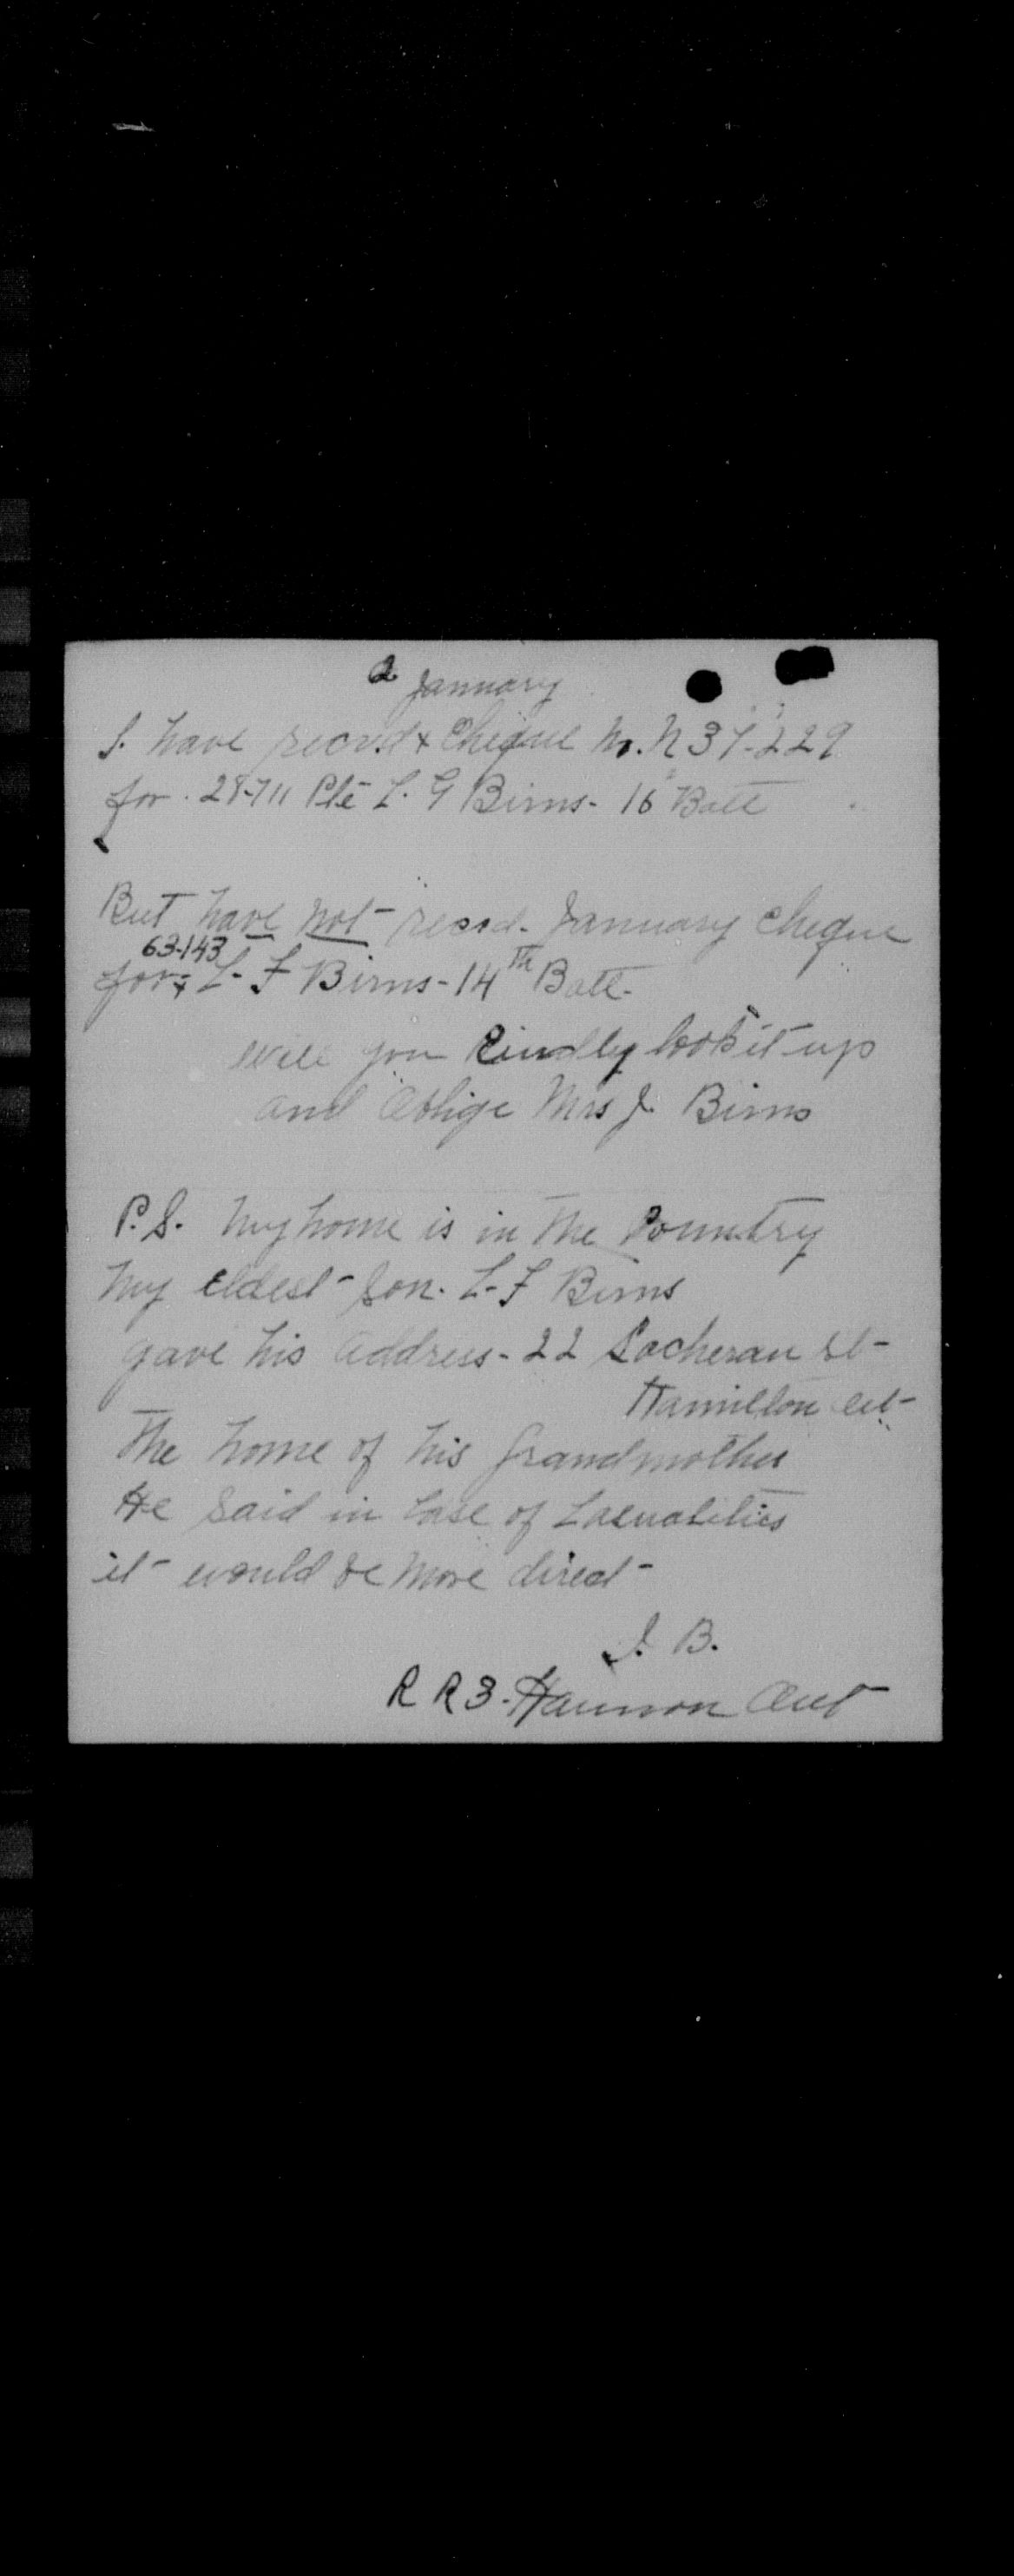 January
I. have recvd + Cheque No. N 37-229
for. 28-711 Pte L. G Birns - 16 Batt
But have not recvd - January cheque
63-143
for + L - F Birns - 14th Batt -
will you Kindly look it up
and Oblige Mrs J. Birns
P. S. My home is in the Country
My eldest son. L - F Birns
gave his address - 22 St -
Hamilton Ont -
The home of his Grandmother
He said in Case of Casualities
it would be more direct -
J. B.
R R 3 - Hannon Ont